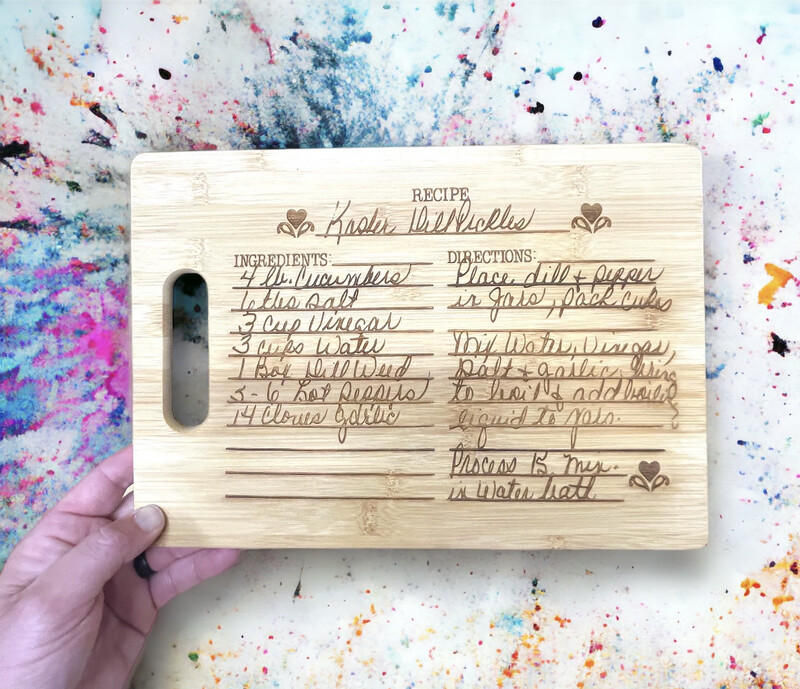 RECIPE
Kosher Dill Pickles
INGREDIENTS:
4 lb. Cucumbers
6 tbs Salt
3 cup Vinegar
3 cups Water
1 Box Dill Weed
5-6 Hot Peppers
14 Cloves garlic
DIRECTIONS:
Place dill & pepper
in Jars, pack cukes
Mix Water, Vinegar,
Salt & garlic, bring
to boil & add boiling
liquid to jars.
Process 15 Min.
in Water bath